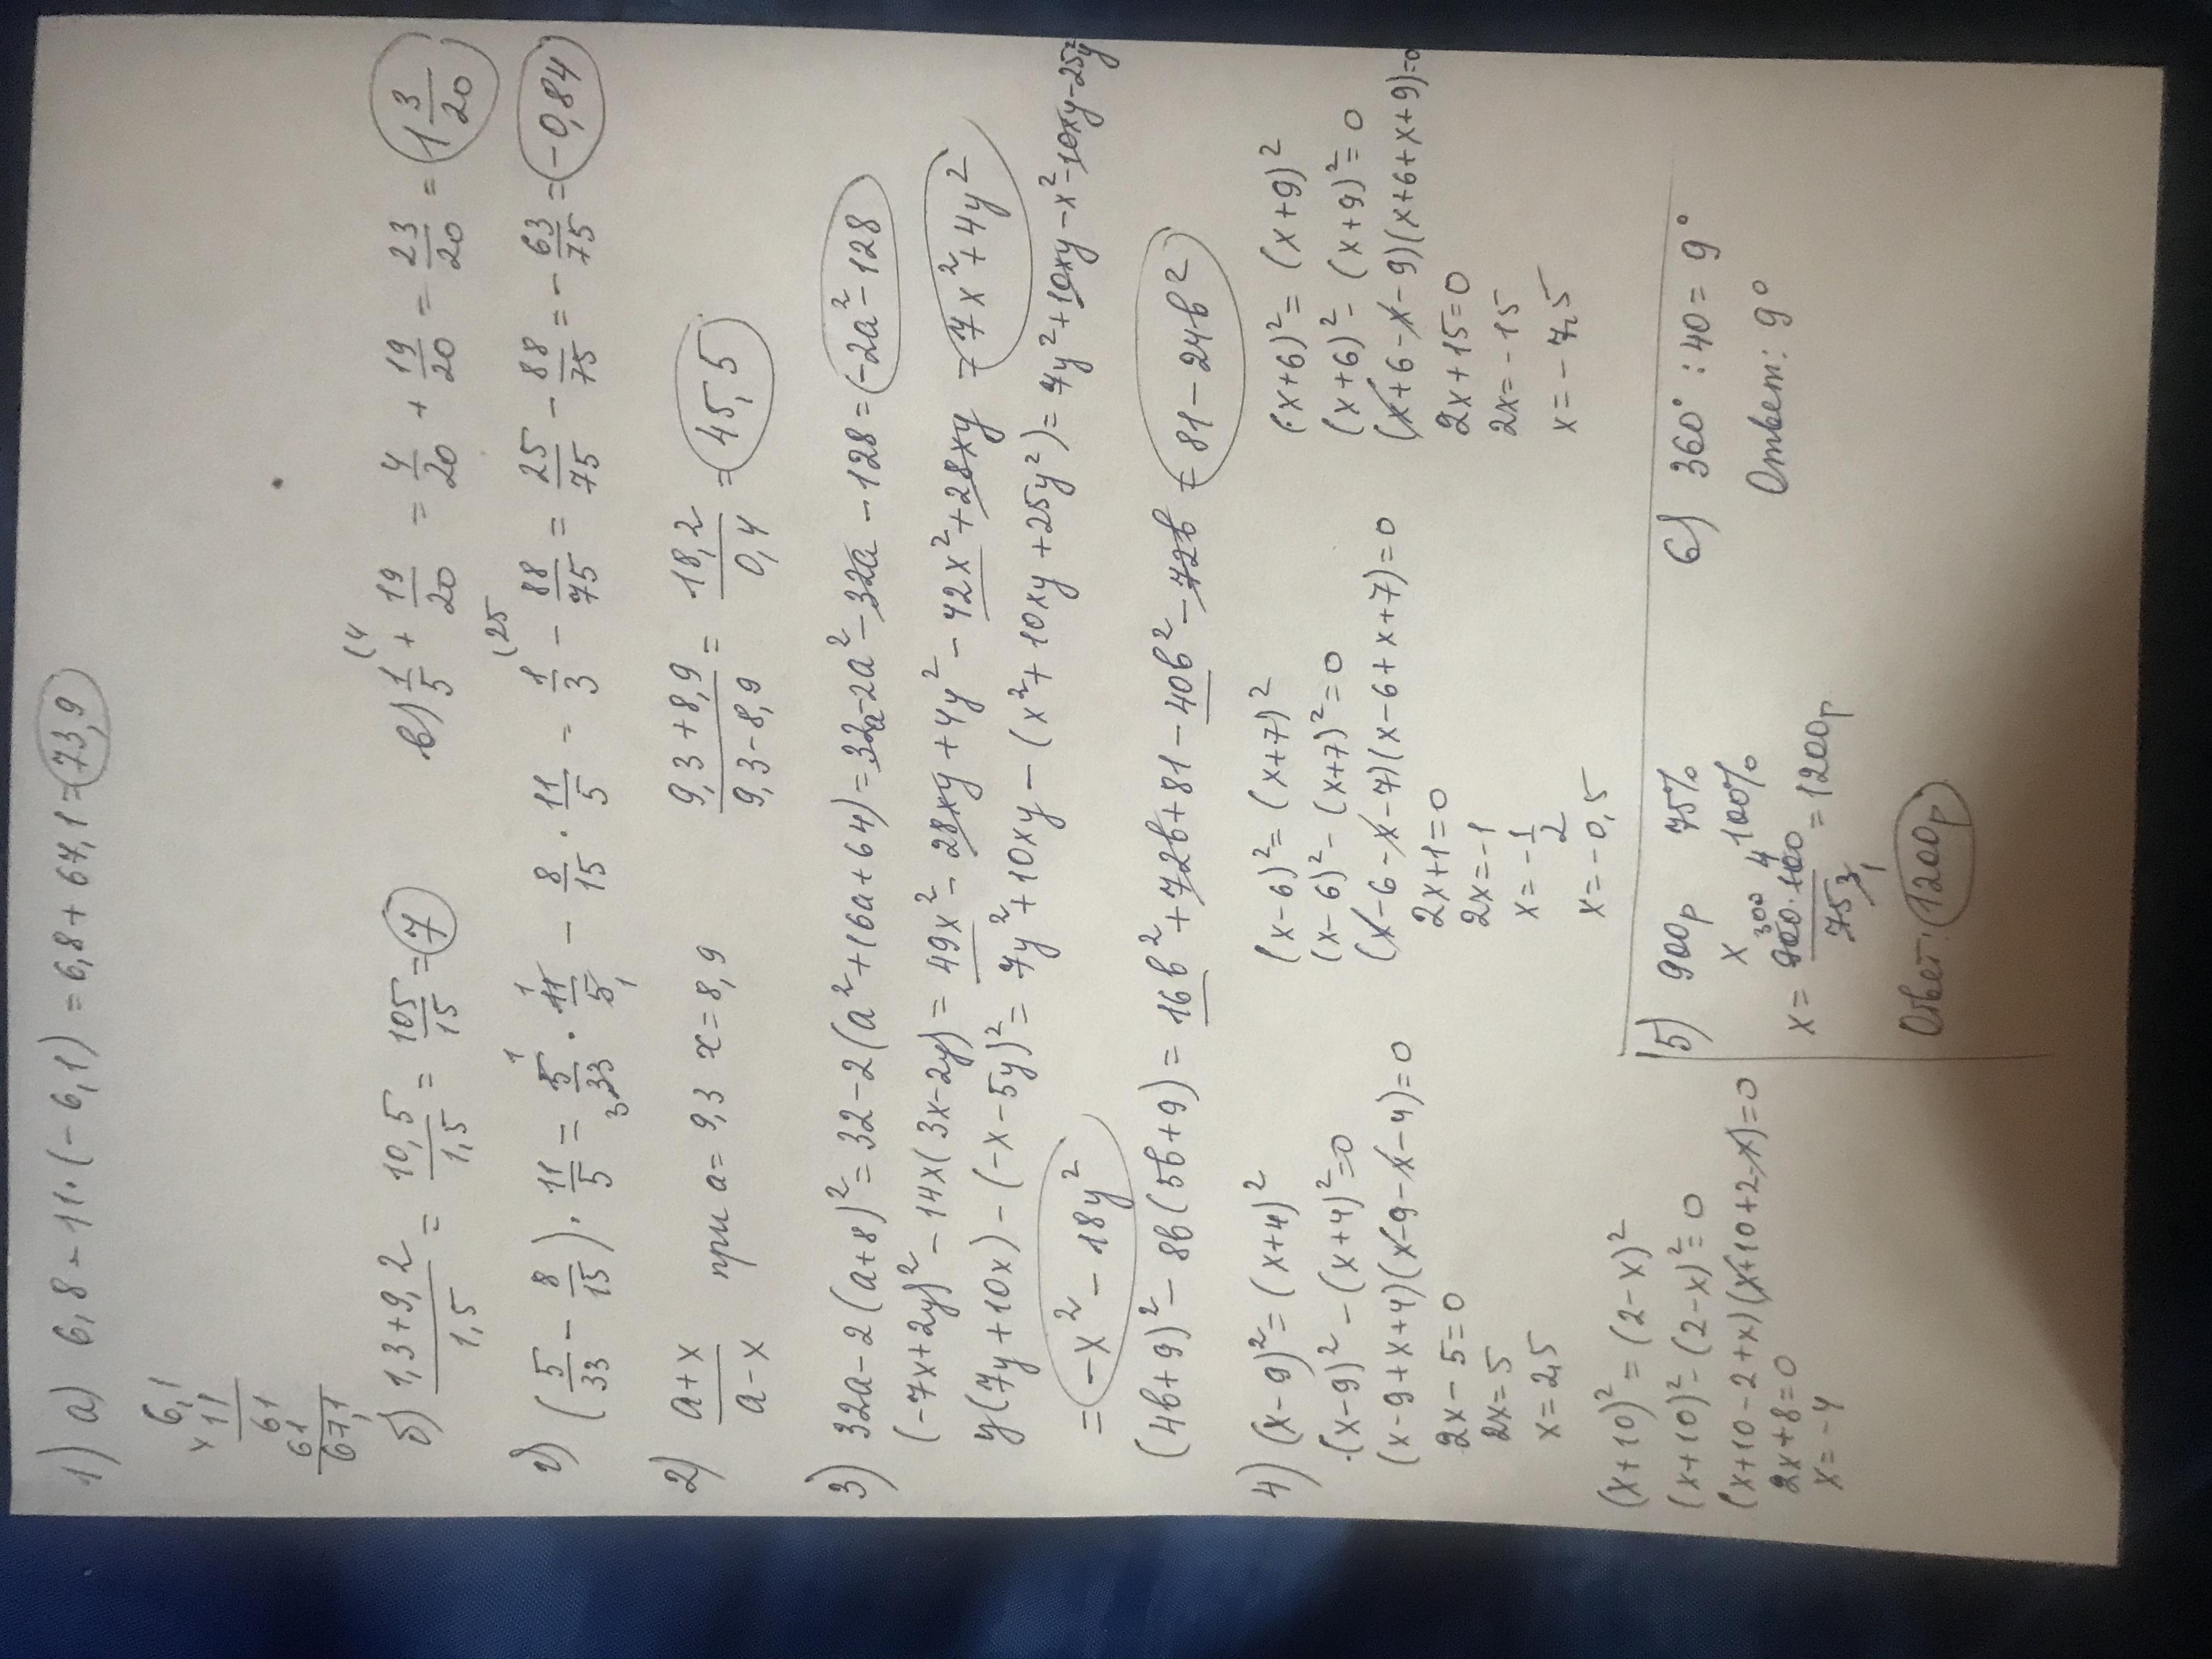 1) а) 6,8 - 11·(-6,1) = 6,8 + 67,1 = 73,9
× 6,1
11
61
61
67,1
б) (1,3+9,2)/1,5 = 10,5/1,5 = 105/15 = 7
в) 1/5 (4 + 19/20 = 4/20 + 19/20 = 23/20 = 1 3/20
г) (5/33 - 8/15) · 11/5 = 5/33 · 11/5 - 8/15 · 11/5 = 1/3 (25 - 88/75 = 25/75 - 88/75 = -63/75 = -0,84
2) (a+x)/(a-x) при a = 9,3 x = 8,9 (9,3+8,9)/(9,3-8,9) = 18,2/0,4 = 45,5
3) 32a - 2(a+8)² = 32 - 2(a² + 16a + 64) = 32a - 2a² - 32a - 128 = -2a² - 128
(-7x+2y)² - 14x(3x-2y) = 49x² - 28xy + 4y² - 42x² + 28xy = 7x² + 4y²
y(7y+10x) - (-x-5y)² = 7y² + 10xy - (x² + 10xy + 25y²) = 7y² + 10xy - x² - 10xy - 25y²
= -x² - 18y²
(4b+9)² - 8b(5b+9) = 16b² + 72b + 81 - 40b² - 72b = 81 - 24b²
4) (x-9)² = (x+4)²
(x-9)² - (x+4)² = 0
(x-9+x+4)(x-9-x-4) = 0
2x - 5 = 0
2x = 5
x = 2,5
(x-6)² = (x+7)²
(x-6)² - (x+7)² = 0
(x-6-x-7)(x-6+x+7) = 0
2x+1 = 0
2x = -1
x = -1/2
x = -0,5
(x+6)² = (x+9)²
(x+6)² - (x+9)² = 0
(x+6-x-9)(x+6+x+9) = 0
2x+15 = 0
2x = -15
x = -7,5
(x+10)² = (2-x)²
(x+10)² - (2-x)² = 0
(x+10-2+x)(x+10+2-x) = 0
2x+8 = 0
x = -4
5) 900р 75%
x 100%
x = 900·100/75 = 1200р
Ответ: 1200р
6) 360° : 40 = 9°
Ответ: 9°